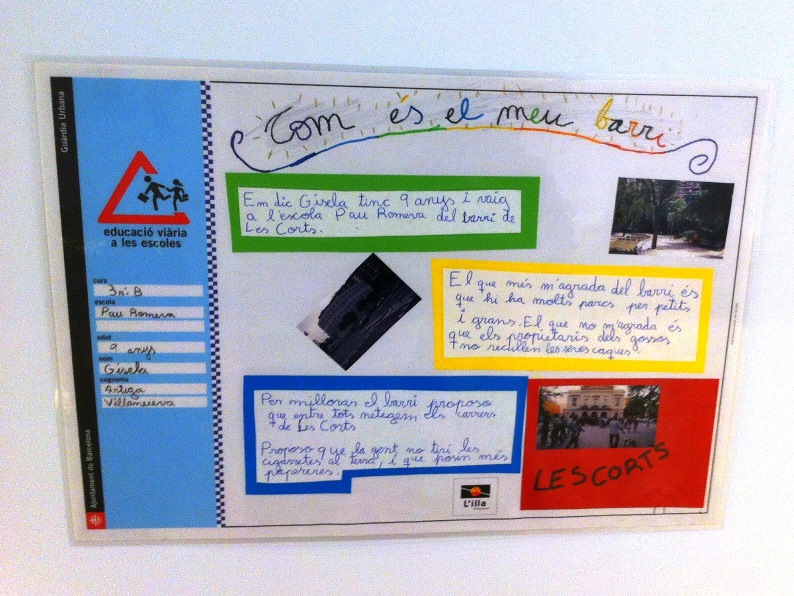 Guàrdia Urbana
educació viària
a les escoles
curs
3r B
escola
Pau Romeva
edat
9 anys
nom
Gisela
cognoms
Artiga
Villanueva
Ajuntament de Barcelona
Com és el meu barri
Em dic Gisela tinc 9 anys i vaig
a l'escola Pau Romeva del barri de
Les Corts.
El que més m'agrada del barri és
que hi ha molts parcs per petits
i grans. El que no m'agrada és
que els propietaris dels gossos
no recullen les seves caques.
Per millorar el barri proposo
que entre tots netegem els carrers
de Les Corts
Proposo que la gent no tiri les
cigarretes al terra, i que posin més
papereres.
L'illa
LES CORTS